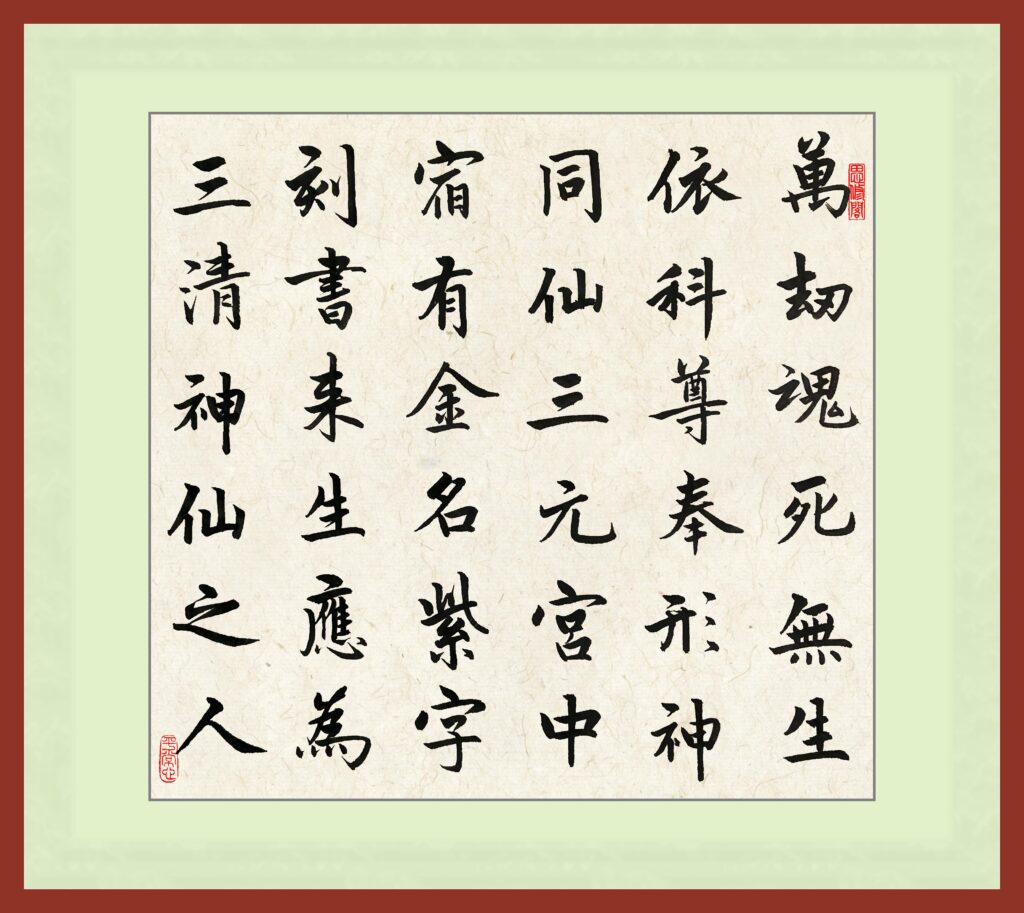 萬刼魂死無生
依科尊奉形神
同仙三元宮中
宿有金名紫字
刻書来生應為
三清神仙之人
平常心